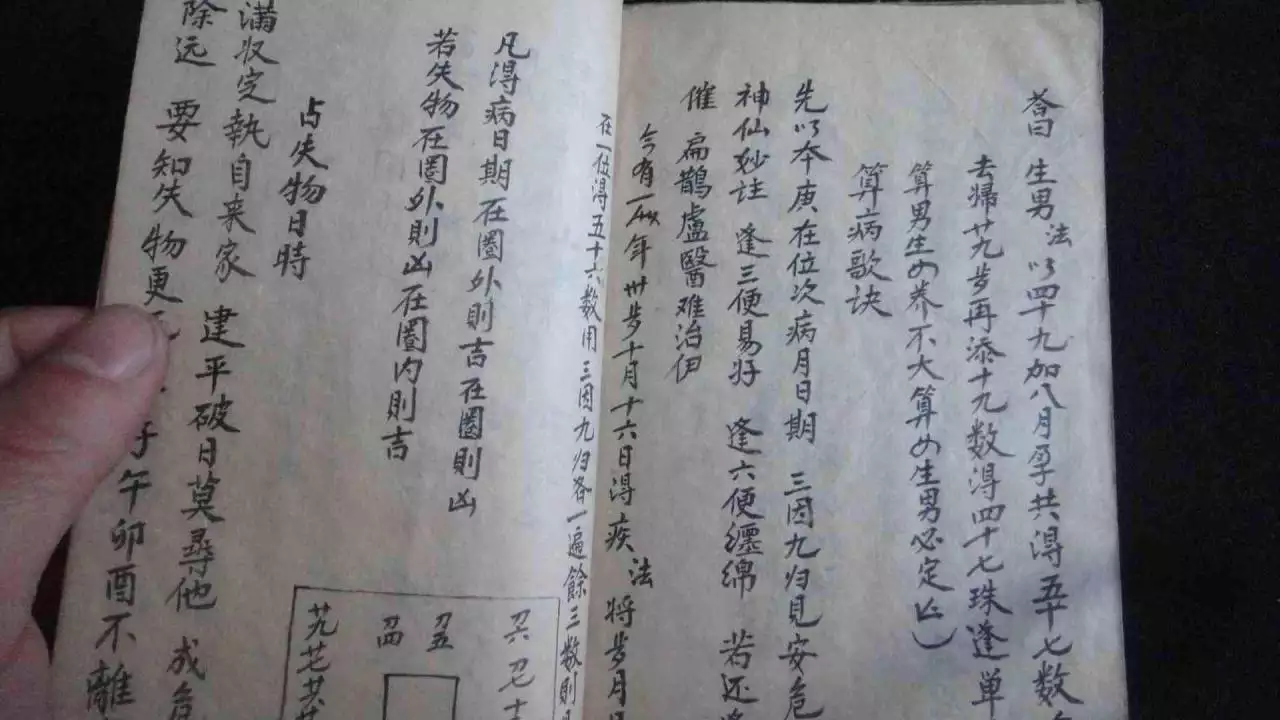 荅曰 生男 法以四十九加八月孕共得五十七数
去歸廾九步再添十九数得四十七珠逢单
算男生女养不大算女生男必定
算病歌诀
先以本庚在位次病月日期 三因九归見安危
神仙妙註 逢三便易好 逢六便纏绵 若还
催 扁鵲盧醫难治伊
今有一 年卅步十月十六日得疾 法 将步月
在一位得五十六数用三因九归各一遍餘三数則
凡得病日期在圏外則吉在圏則凶
若失物在圏外則凶在圏内則吉
占失物日時
满収定執自来家 建平破日莫尋他 成危
除远 要知失物更 子午卯酉不離